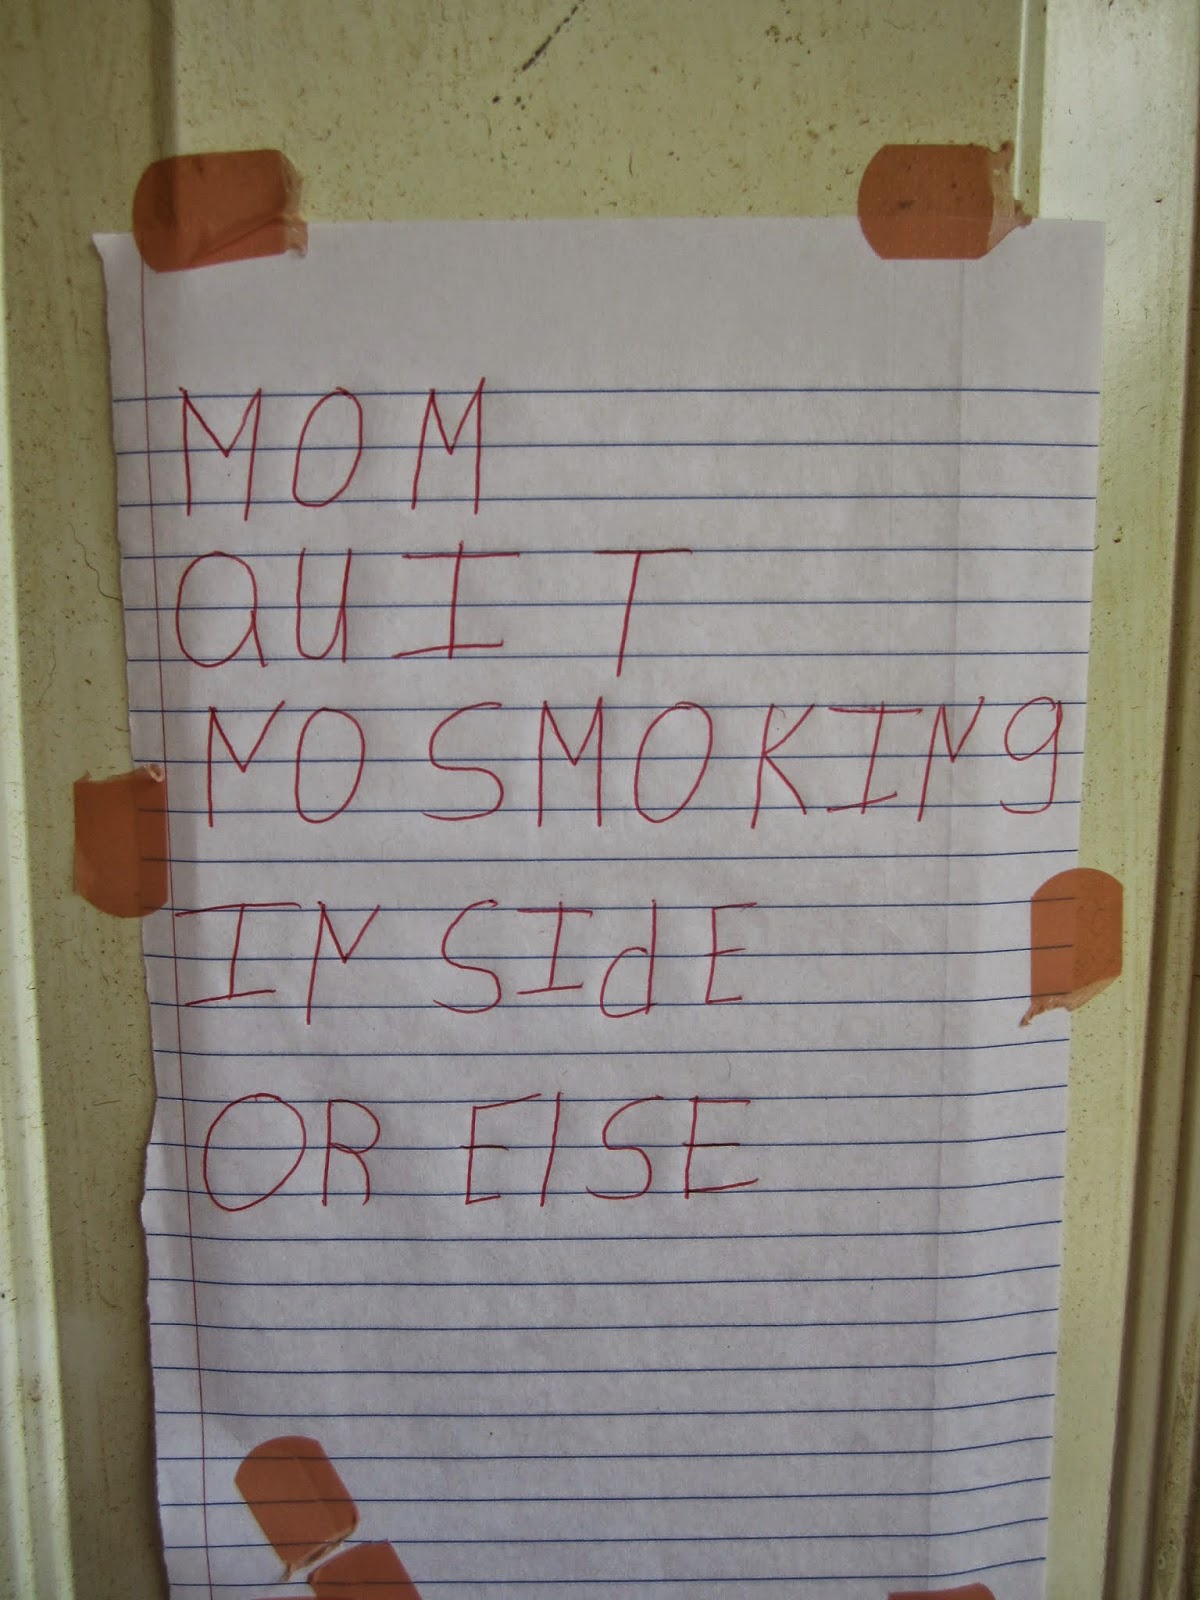 MOM
QUIT
NO SMOKING
IN SIdE
OR ElSE